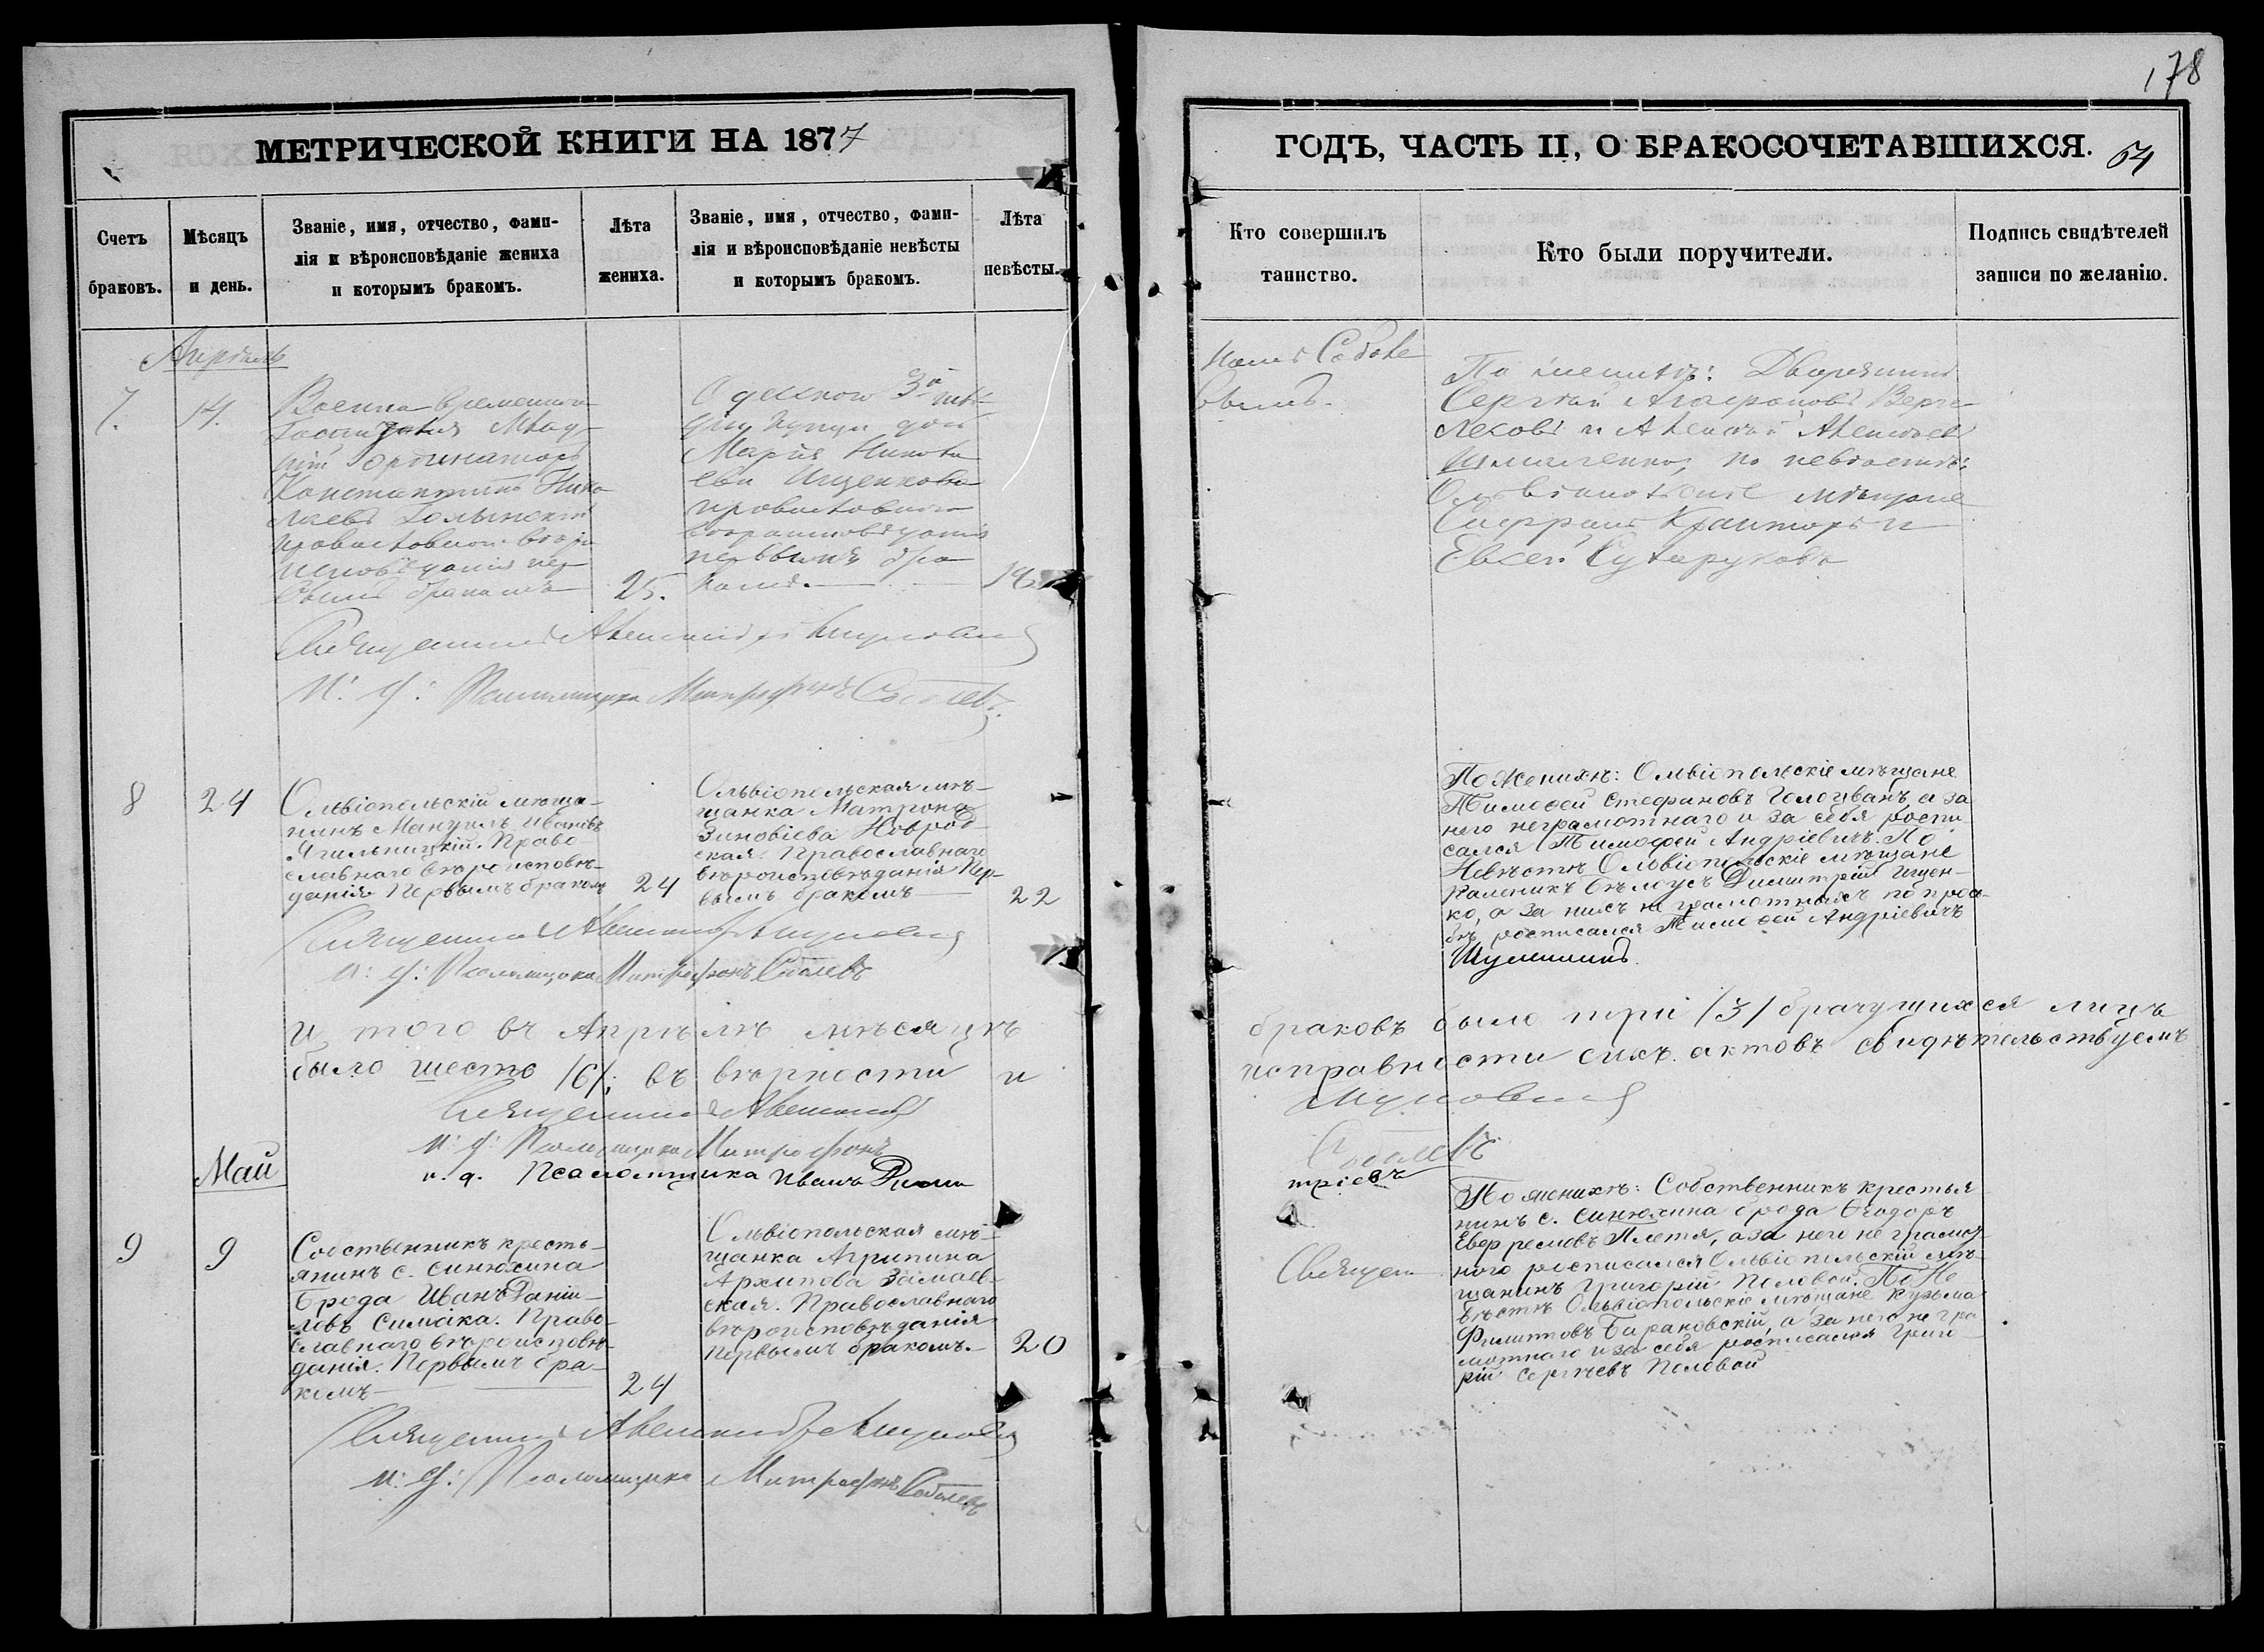 178
МЕТРИЧЕСКОЙ КНИГИ НА 1877
ГОДЪ, ЧАСТЬ II, О БРАКОСОЧЕТАВШИХСЯ. 54
Счетъ браковъ.
Мѣсяцъ и день.
Званіе, имя, отчество, фами-
лія и вѣроисповѣданіе жениха
и которымъ бракомъ.
Лѣта жениха.
Званіе, имя, отчество, фами-
лія и вѣроисповѣданіе невѣсты
и которымъ бракомъ.
Лѣта невѣсты.
Кто совершилъ таинство.
Кто были поручители.
Подпись свидѣтелей
записи по желанію.
Апрѣль
7.
14.
Военно временнаго
Госпиталя Млад-
шій ординаторъ
Константинъ Нико-
лаевъ Голынскій
православнаго вѣро
исповѣданія пер
вымъ бракомъ
25.
Одесского 3й гиль-
діи купца дочь
Марія Никола
ева Ищенкова
православнаго
вѣроисповѣданія
первымъ бра
комъ.
19
По женихѣ: Дворянинъ
Сергѣй
и Алексѣй Алексѣевъ
по невѣстѣ:
Ольвіопольскіе мѣщане
и
Евсей
Священникъ Александръ
и: д: Псаломщика Митрофанъ Соболевъ.
8
24
Ольвіопольскій мѣща-
нинъ Мануилъ Ивановъ
Ягильницкій. Право-
славнаго вѣроисповѣ-
данія. Первымъ бракомъ
24
Ольвіопольская мѣ-
щанка Матрона
Зиновіева Новрод-
ская. Православнаго
вѣроисповѣданія Пер-
вымъ бракомъ
22
По Женихѣ: Ольвіопольскіе мѣщане
Тимофей Стефановъ Голоцванъ, а за
него неграмотнаго и за себя роспи
сался Тимофей Андріевичъ. По
Невѣстѣ Ольвіопольскіе мѣщане
Каленикъ Бѣлоусъ Димитрій Ищен-
ко, а за нихъ не грамотныхъ по прось-
бѣ росписался Тимофей Андріевичъ
Шумилинъ.
Священникъ Александръ
и: д: Псаломщика Митрофанъ Соболевъ
И того въ Апрѣлѣ мѣсяцѣ браковъ было три /3/ брачущихся лицъ
было шесть /6/; въ вѣрности и исправности сихъ актовъ свидѣтельствуемъ
Священникъ Александръ
и: д: Псаломщика Митрофанъ Соболевъ
и. д. Псаломщика Иванъ
Май
9
9
Собственникъ кресть-
янинъ с. Синюхина
Брода Иванъ Даніи-
ловъ Симака. Право-
славнаго вѣроисповѣ-
данія. Первымъ бра-
комъ
24
Ольвіопольская мѣ-
щанка Агрипина
Архипова Замаев-
ская. Православнаго
вѣроисповѣданія
первымъ бракомъ.
20
Священ
По женихѣ: Собственникъ крестья
нинъ с. Синюхина брода Ѳеодоръ
Евфремовъ Плетя, а за него не грамот-
ного росписался Ольвіопольскій мѣ-
щанинъ Григорій Половой. По Не
вѣстѣ Ольвіопольскіе мѣщане Кузьма
Филипповъ Барановскій, а за него не гра
мотнаго и за себя росписался Григо-
рій Сергѣевъ Половой
Священникъ Александръ
и: д: Псаломщика Митрофанъ Соболевъ